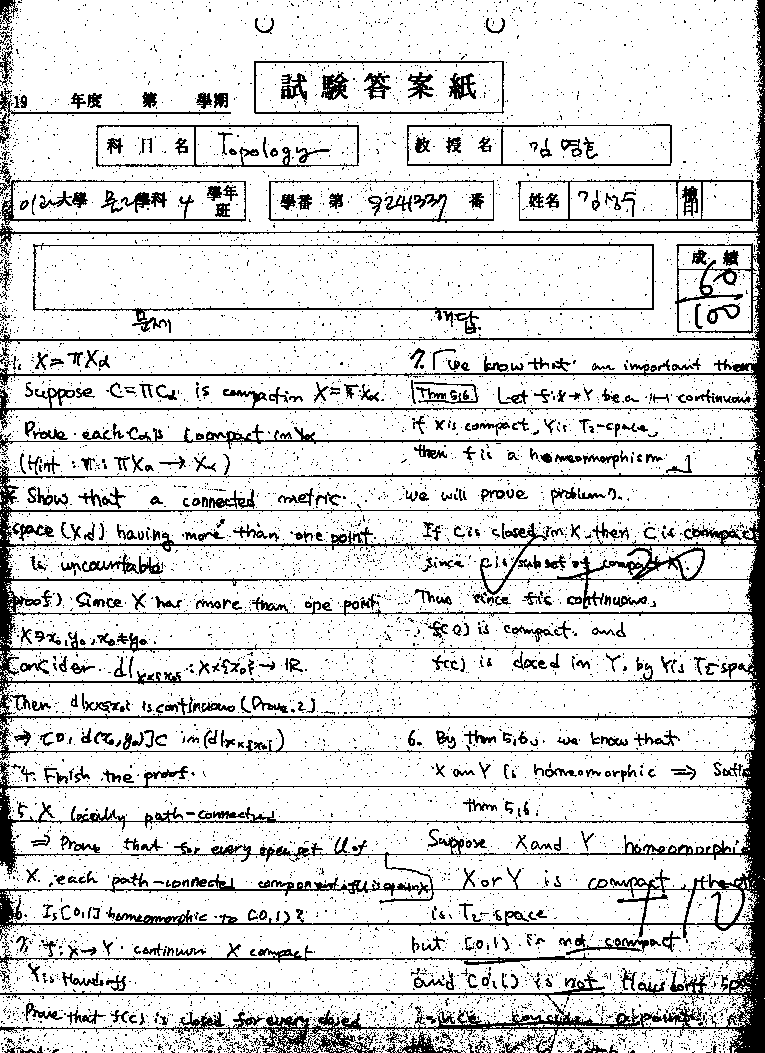 試驗答案紙
19 年度 第 學期
科目名 Topology
教授名 김영호
이과大學 물리學科 4 學年 班
學番 第 9241337 番
姓名
檢印
成績
60
100
문제
해답
1. X = πXα
Suppose C=πCα is compact in X=πXα.
Prove each Cα is compact in Xα
(Hint : π : πXα → Xα)
Show that a connected metric
space (X,d) having more than one point
is uncountable
proof) Since X has more than one point,
X∋x₀,y₀, x₀≠y₀.
Consider d|X×{x₀} : X×{x₀} → ℝ.
Then d|X×{x₀} is continuous (Prove.2)
⇒ [0, d(x₀,y₀)]⊂ im(d|X×{x₀})
4. Finish the proof.
5. X locally path-connected
⇒ Prove that for every open set U of
X, each path-connected component of U is open in X
6. Is [0,1] homeomorphic to [0,1)?
7. f: X→Y continuous X compact
Y is Hausdorff
Prove that f(c) is closed for every closed
7. 「we know that an important
Thm 5,6 Let f:X→Y be a 1-1 continuous
if X is compact, Y is T₂-space,
then f is a homeomorphism 」
we will prove problem 7.
If C is closed in X, then C is compact
since C is subset of compact X.
+20
Thus since f is continuous,
f(c) is compact. and
f(c) is closed in Y, by Y is T₂-space
6. By thm 5,6, we know that
X and Y is homeomorphic ⇒
thm 5,6.
Suppose X and Y homeomorphic
X or Y is compact,
+10
is T₂-space
but [0,1) is not compact
and [0,1) is not Hausdorff
since consider